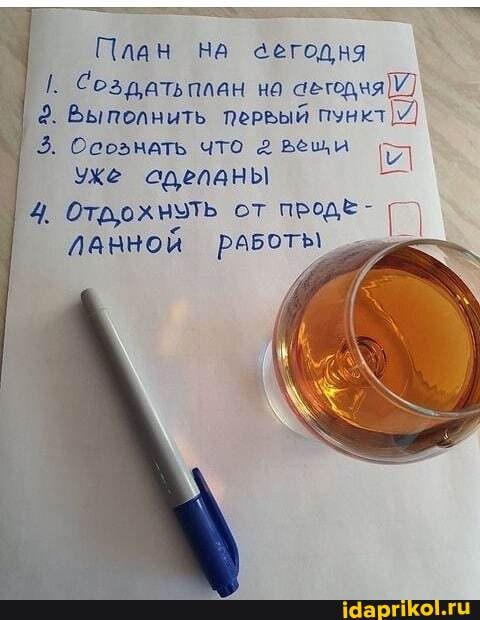 План на сегодня
1. Создать план на сегодня
2. Выполнить первый пункт
3. Осознать что 2 вещи
уже сделаны
4. Отдохнуть от проде-
ланной работы
idaprikol.ru